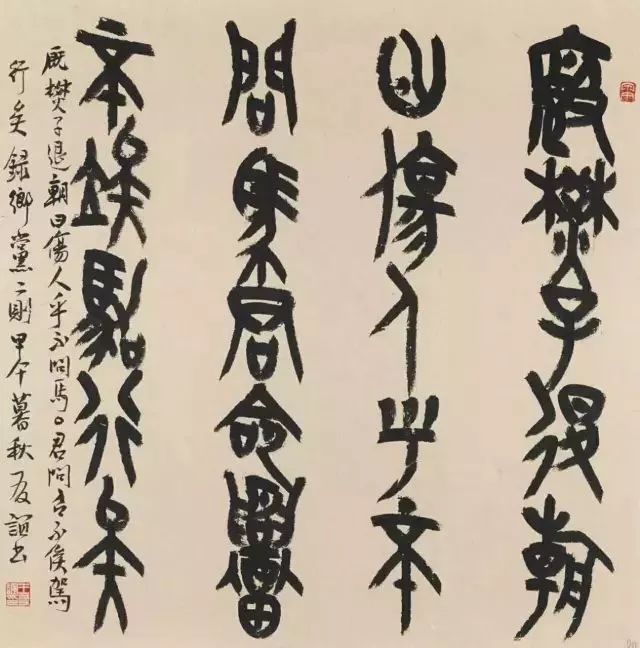 廄燓子退朝
曰傷人乎不
問馬君命召
不俟駕行矣
廄燓子退朝曰傷人乎不問馬。君命召不俟駕
行矣 錄鄉黨二則 甲午暮秋友誼書